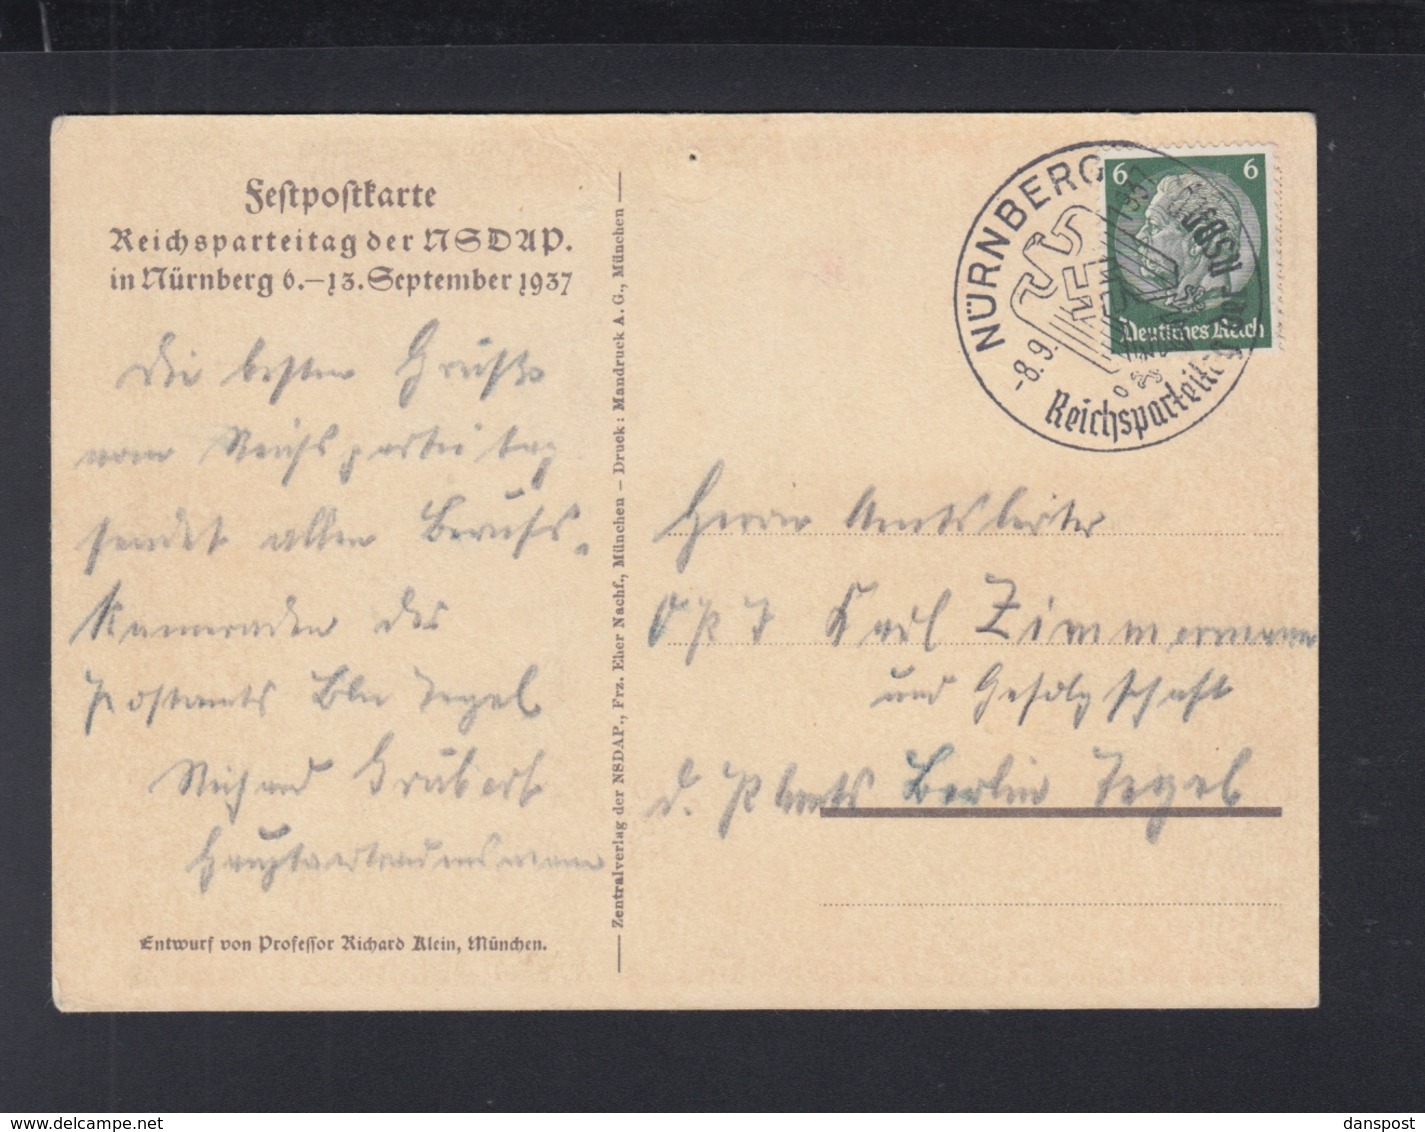 Festpostkarte
Reichsparteitag der NSDAP.
in Nürnberg 6.–13. September 1937
Die besten Grüße
vom Reichsparteitag
sendet allen Berufs-
kameraden des
Postamts Bln Tegel
Richard Grubert
Entwurf von Professor Richard Klein, München.
Zentralverlag der NSDAP., Frz. Eher Nachf., München – Druck: Mandruck A. G., München
NÜRNBERG
-8.9.
1937
Reichsparteitag
der NSDAP
6 6
Deutsches Reich
Herrn Amtsleiter
OPJ Karl Zimmermann
und Gefolgschaft
d. P Amts Berlin Tegel
danspost